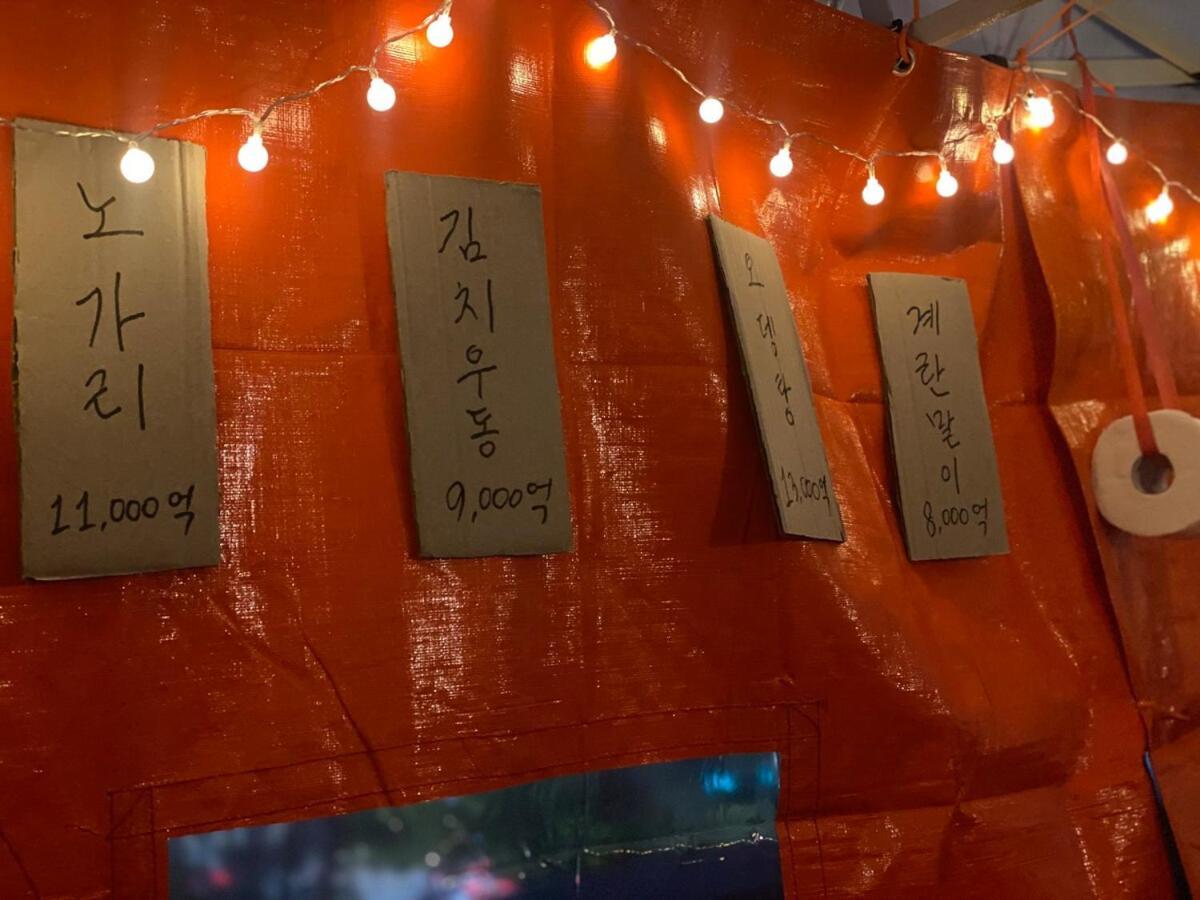 노가리
11,000억
김치우동
9,000억
오뎅탕
13,000억
계란말이
8,000억